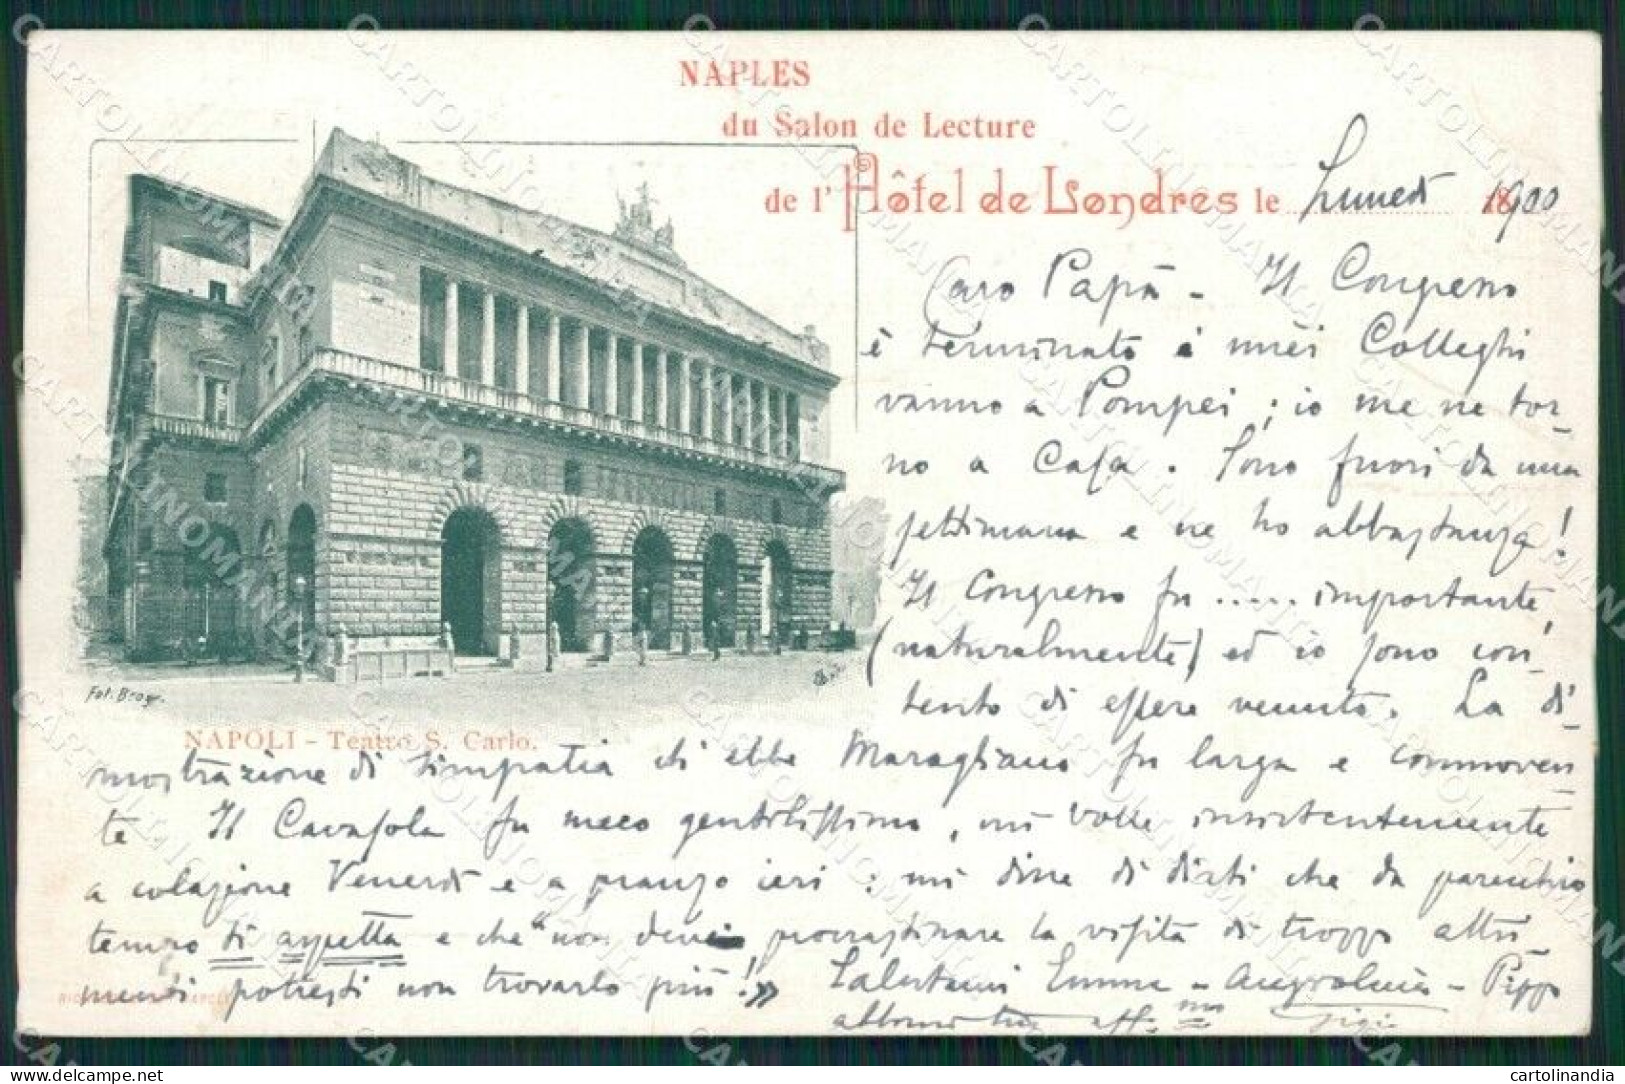 NAPLES
du Salon de Lecture
de l' Hôtel de Londres le Lunedì 1900
Caro Papà - Il Congresso
è terminato i miei Colleghi
vanno a Pompei; io me ne tor-
no a Casa. Sono fuori da una
settimana e ne ho abbastanza!
Il Congresso fu ..... importante,
(naturalmente) ed io sono con-
tento di essere venuto. La di-
Fot. Brogi.
NAPOLI - Teatro S. Carlo.
mostrazione di simpatia ch'ebbe Maragliano fu larga e commoven-
te Il Cavasola fu meco gentilissimo, mi volle insistentemente
a colazione Venerdì e a pranzo ieri: mi disse di dirti che da parecchio
tempo ti aspetta e che "non devi procrastinare la visita di troppo altri-
menti potresti non trovarlo più!» Salutami Emma - - Pippo
aff.mo Gigi
cartolinandia